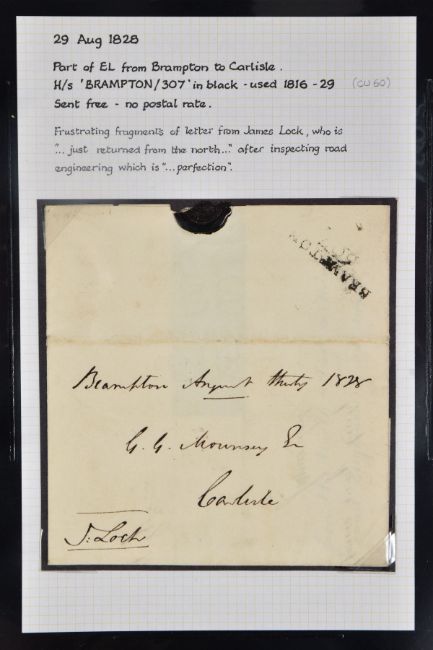 29 Aug 1828
Part of EL from Brampton to Carlisle.
H/s 'BRAMPTON/307' in black - used 1816 - 29 (CU 60)
Sent free - no postal rate.
Frustrating fragments of letter from James Lock, who is
"... just returned from the north..." after inspecting road
engineering which is "... perfection".
BRAMPTON
Brampton August thirty 1828
G. G. Mounsey Er
Carlisle
J: Loch